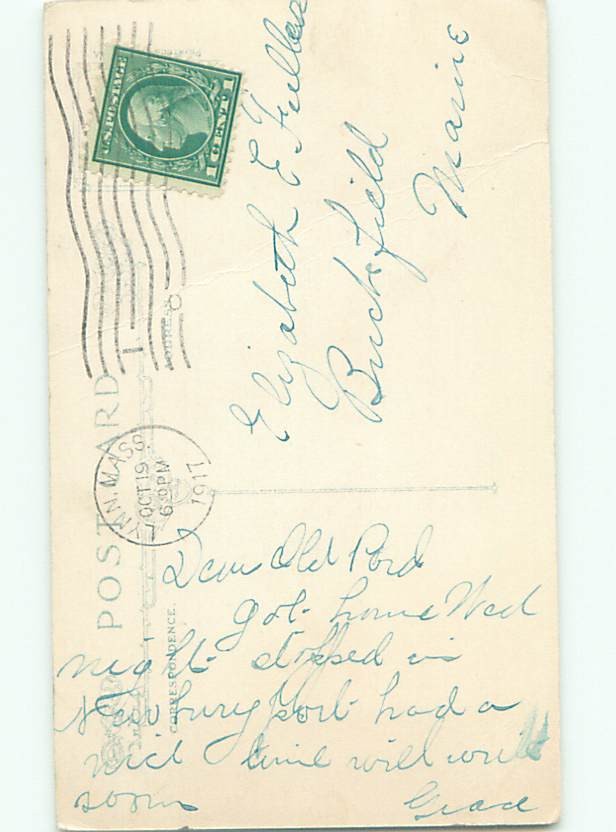 U.S. POSTAGE
1 CENT 1
POST CARD
ADDRESS
LYNN, MASS
OCT 19
6 PM
1917
CORRESPONDENCE.
Elizabeth E Fuller
Buckfield
Maine
Dear Old Pard
got home Wed
night stopped in
Newburyport had a
nice time will write
soon Grace